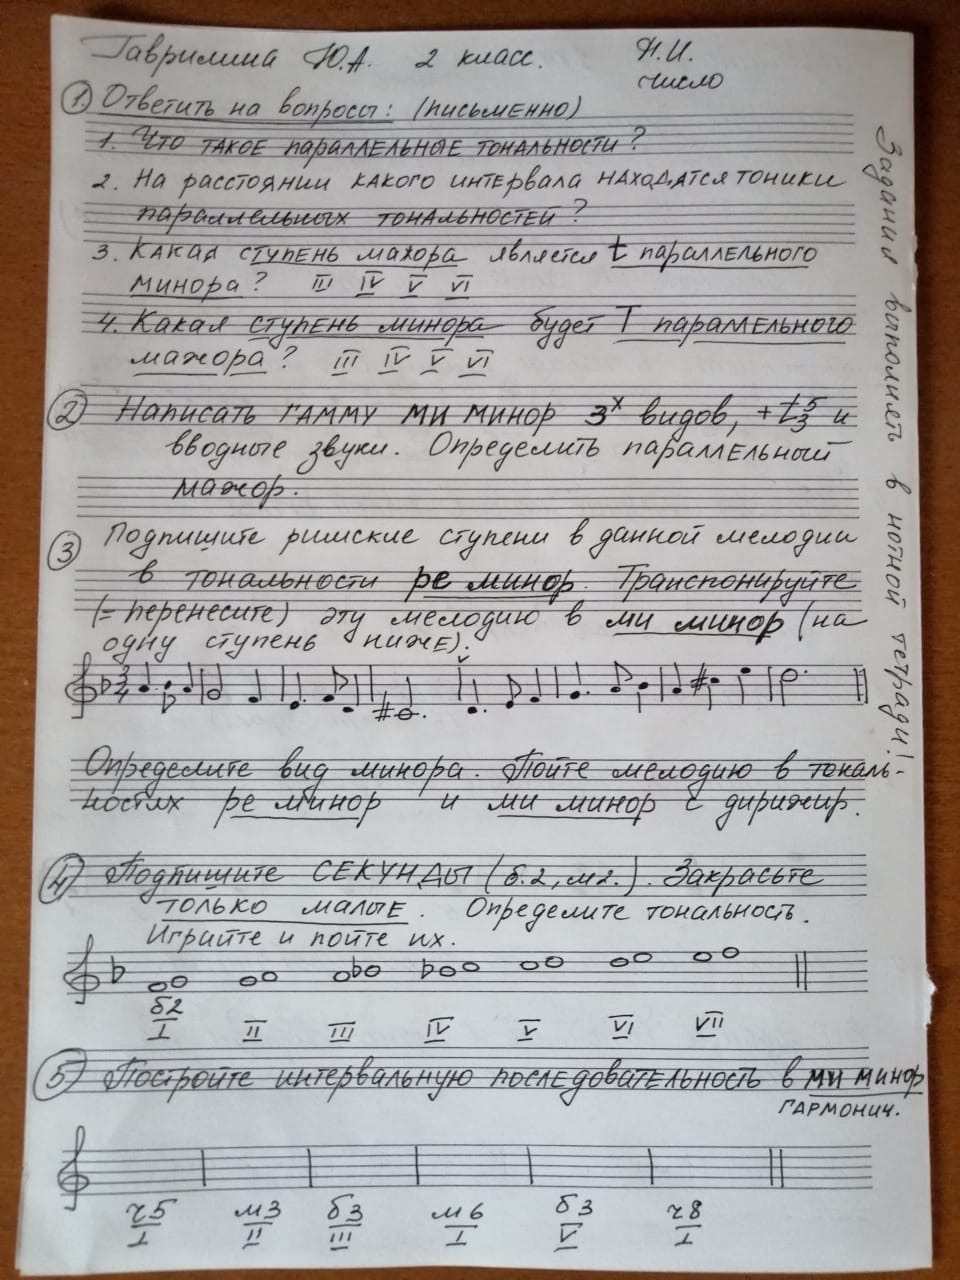 Гаврилина Ю.А. 2 класс. Н.И.
число
① Ответить на вопросы: (письменно)
1. Что такое параллельные тональности?
2. На расстоянии какого интервала находятся тоники
параллельных тональностей?
3. Какая ступень мажора является t параллельного
минора? III IV V VI
4. Какая ступень минора будет T параллельного
мажора? III IV V VI
② Написать гамму ми минор 3х видов, + t 5 3 и
вводные звуки. Определить параллельный
мажор.
③ Подпишите римские ступени в данной мелодии
в тональности ре минор. Транспонируйте
(= перенесите) эту мелодию в ми минор (на
одну ступень ниже).
3 4
Определите вид минора. Пойте мелодию в тональ-
ностях ре минор и ми минор с дирижир.
④ Подпишите СЕКУНДЫ (б.2, м2.). Закрасьте
только малые. Определите тональность.
Играйте и пойте их.
б2
I II III IV V VI VII
⑤ Постройте интервальную последовательность в ми минор
гармонич.
ч5 м3 б3 м6 б3 ч8
I II III I V I
Задания выполнять в нотной тетради!